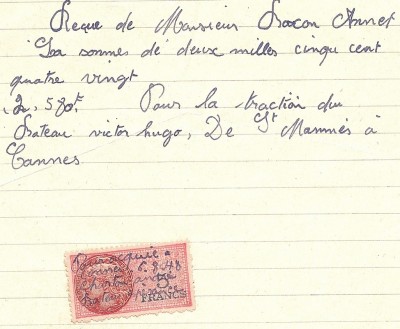 Reçue de Monsieur Annet
La sommes de deux milles cinqu cent
quatre vingt
2.580f. Pour la traction du
Bateau victor hugo, De St Mammès à
Cannes
Pour acquit
6.8.48
FRANCS